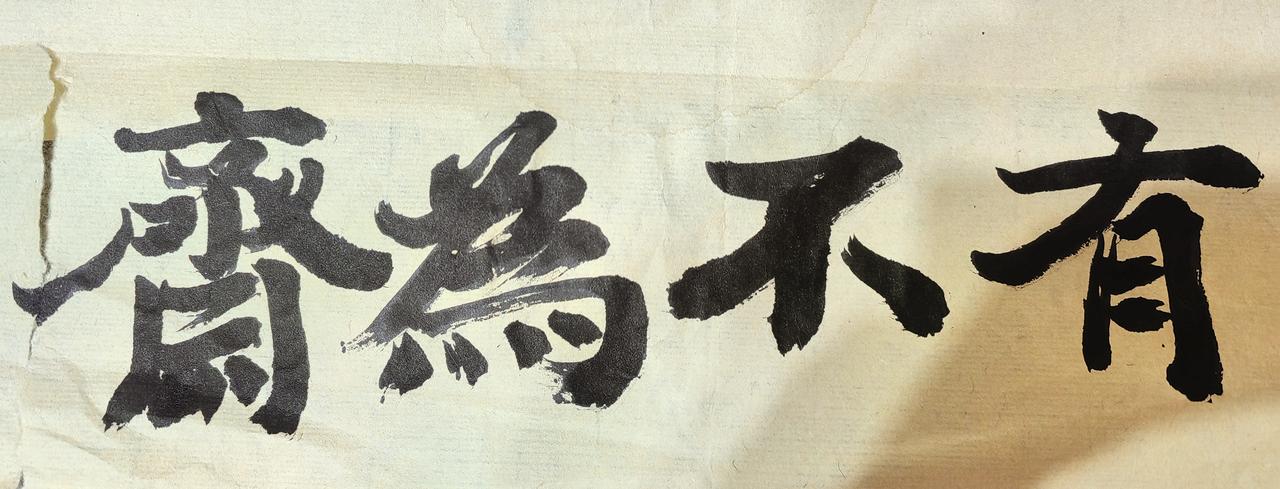 有不為齋